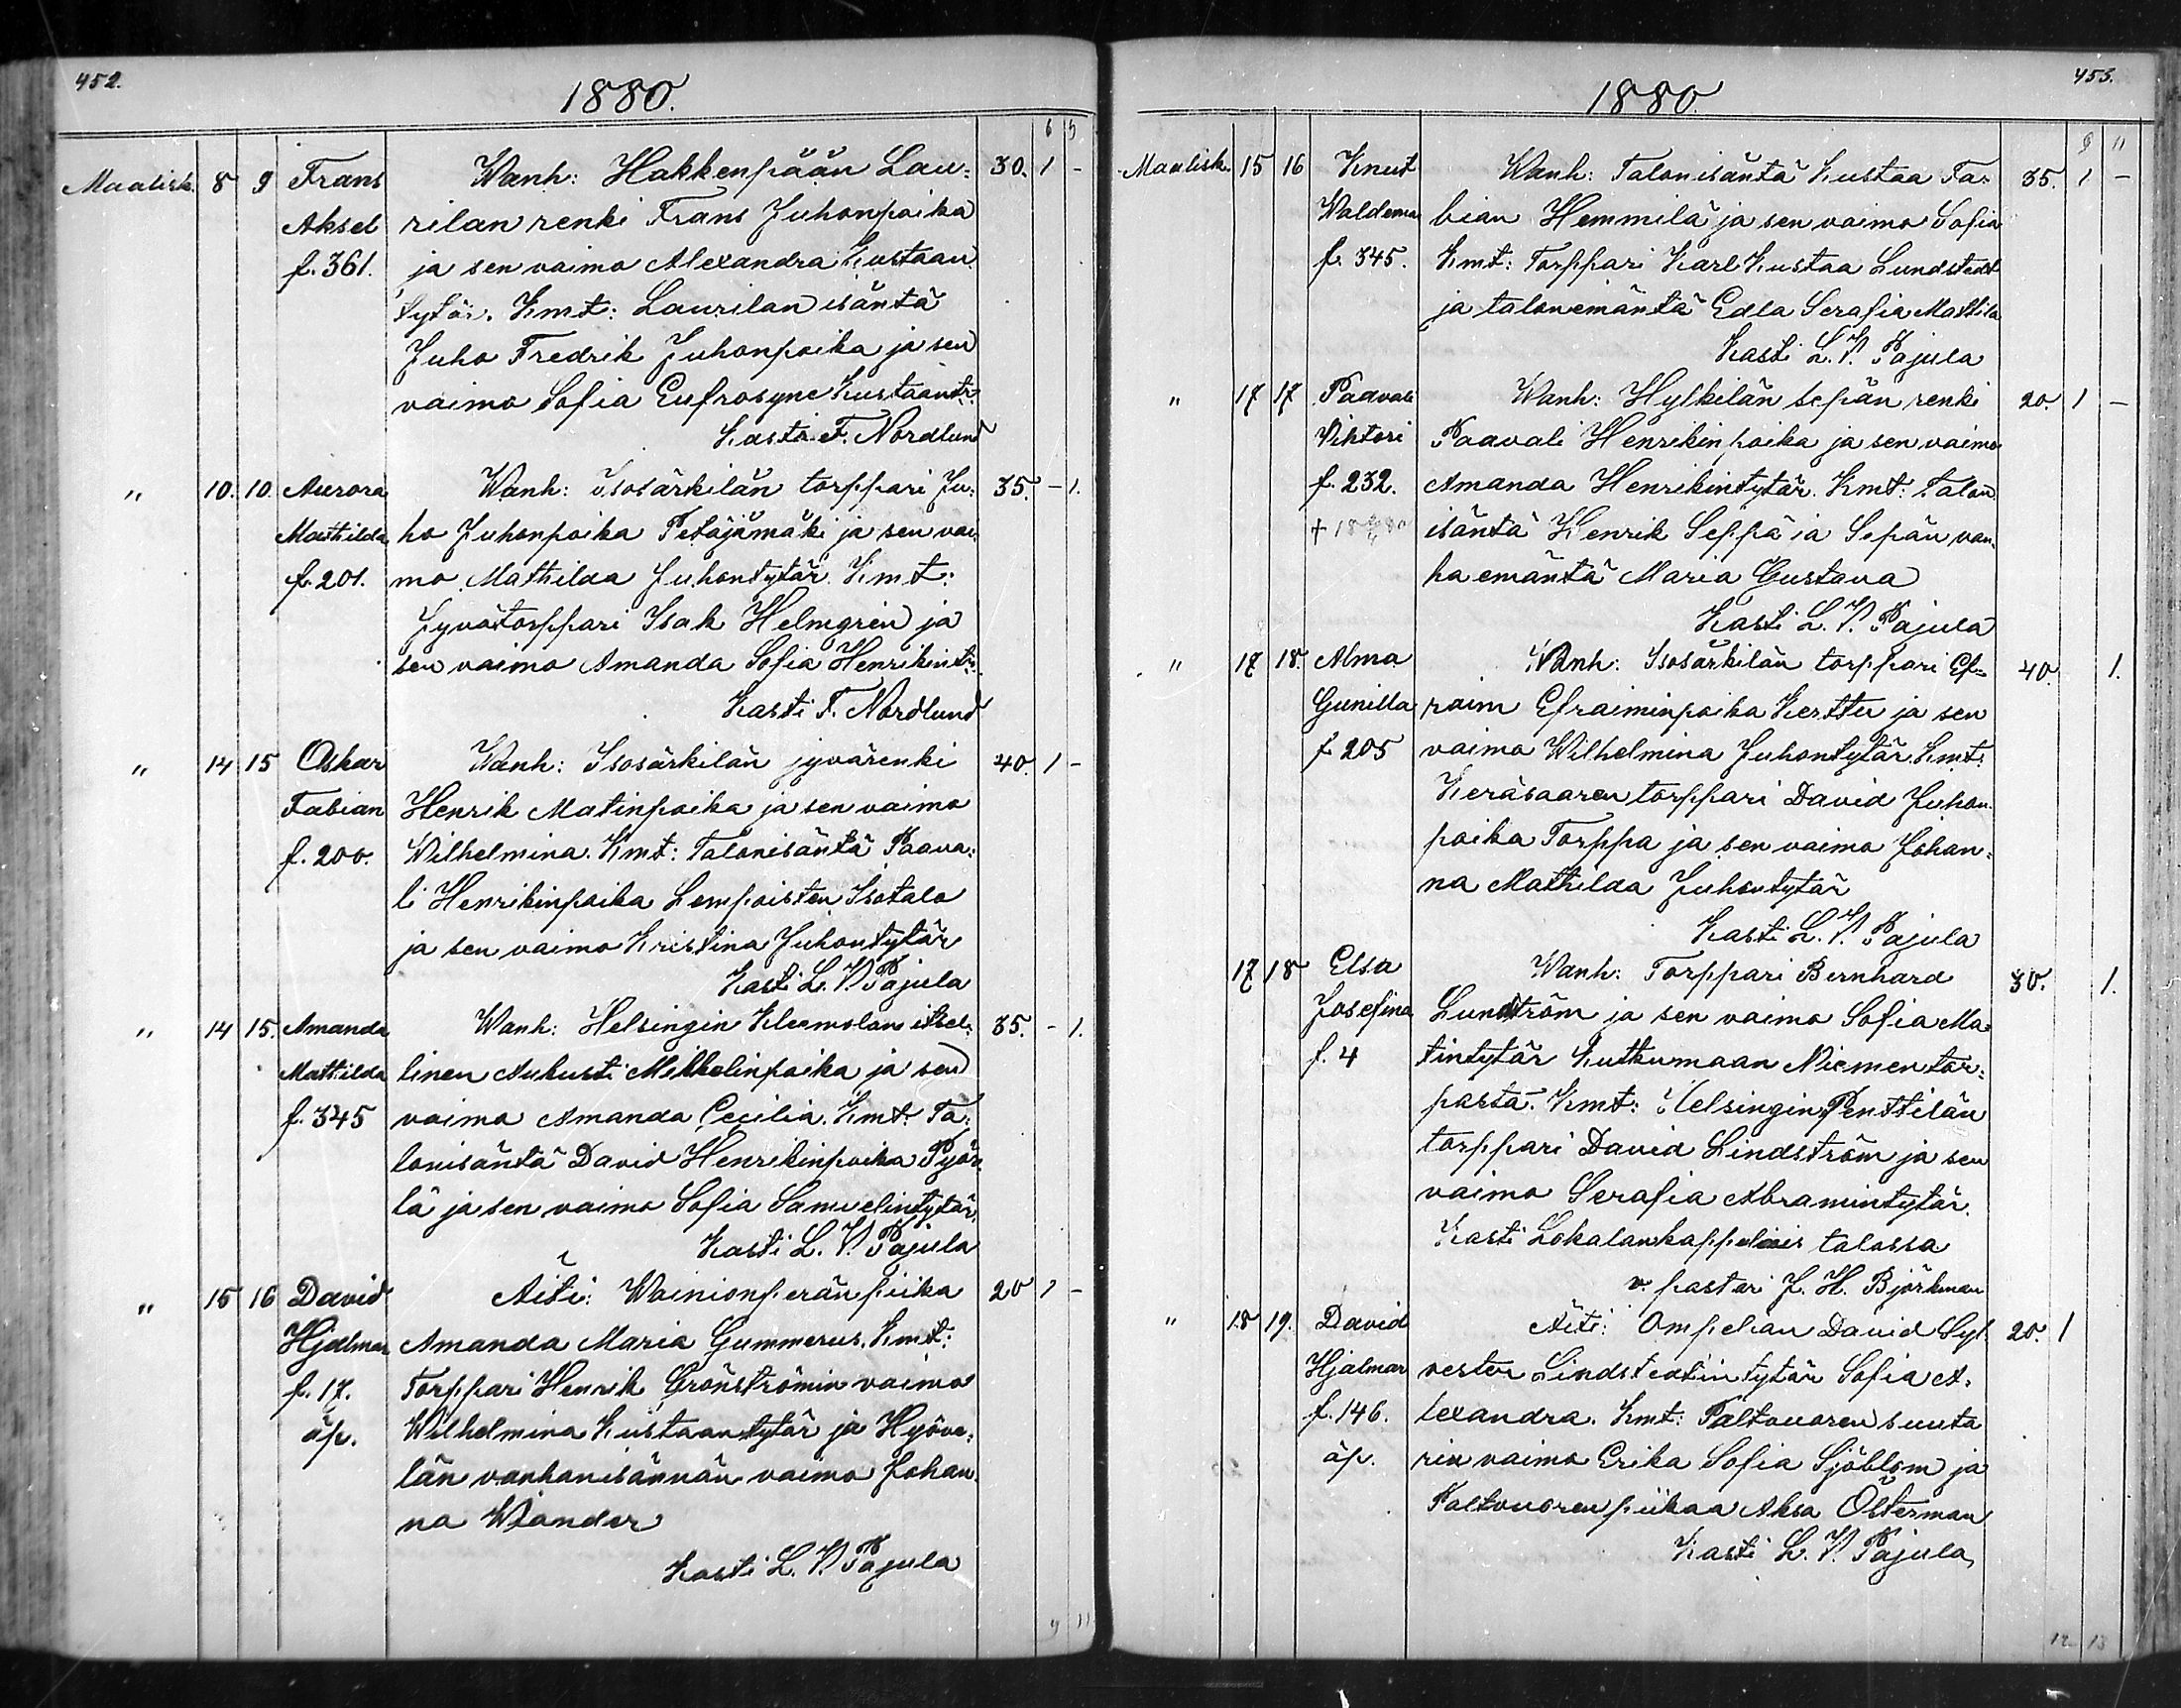 452.
1880.
6 5
Maalisk. 8 9 Frans Wanh: Hakkenpään Lau= 30. 1 -
Aksel rilan renki Frans Juhonpoika
f. 361. ja sen vaimo Alexandra Kustaan
tytär. Kmt: Laurilan isäntä
Juho Fredrik Juhonpoika ja sen
vaimo Sofia Eufrosyne Kustaantr.
Kasti F. Nordlund
" 10. 10. Aurora Wanh: Isosärkilän torppari Ju= 35. - 1.
Mathilda ho Juhonpoika Petäjämäki ja sen vai
f. 201. mo Mathilda Juhontytär. Kmt:
Jyvätorppari Isak Helmgren ja
sen vaimo Amanda Sofia Henrikintr.
Kasti F. Nordlund
" 14 15 Oskar Wanh: Isosärkilän jyvärenki 40. 1 -
Fabian Henrik Matinpoika ja sen vaimo
f. 200. Wilhelmina. Kmt: Talonisäntä Paava=
li Henrikinpoika Lempoisten Isotalo
ja sen vaimo Kristina Juhontytär
Kasti L. V. Pajula
" 14 15. Amanda Wanh: Helsingin Kleemolan itsel= 35. - 1.
Mathilda linen Aukusti Mikkelinpoika ja sen
f. 345 vaimo Amanda Cecilia. Kmt: Ta=
lonisäntä David Henrikinpoika Pyöri
lä ja sen vaimo Sofia Samuelintytär.
Kasti L. V. Pajula
" 15 16 David Äiti: Wainionperän piika 20 1 -
Hjalmar Amanda Maria Gummerus. Kmt:
f. 17. Torppari Henrik Grönströmin vaimo
äp. Wilhelmina Kustaantytär ja Hyöve=
län vanhanisännän vaimo Johan
na Wiander
Kasti L. V. Pajula
9 11
453.
1880.
9 11
Maalisk. 15 16 Knut Wanh: Talonisäntä Kustaa Fa= 35. 1 -
Waldemar bian Hemmilä ja sen vaimo Sofia
f. 345. Kmt: Torppari Karl Kustaa Lundstedt
ja talonemäntä Edla Serafia Mattila
Kasti L. V. Pajula
" 17 17 Paavali Wanh: Hylkilän Sepän renki 20. 1 -
Vihtori Paavali Henrikin poika ja sen vaimo
f. 232. Amanda Henrikintytär. Kmt: Talon
isäntä Henrik Seppä ja Sepän van
ha emäntä Maria Gustava
Kasti L. V. Pajula
" 17 18. Alma Wanh: Isosärkilän torppari Ef= 40. 1.
Gunilla raim Efraiminpoika Kerttu ja sen
f. 205 vaimo Wilhelmina Juhontytär. Kmt:
Keräsaaren torppari David Juhon
poika Torppa ja sen vaimo Johan=
na Mathilda Juhontytär
Kasti L. V. Pajula
17 18 Elsa Wanh: Torppari Bernhard 30. 1.
Josefina Lundström ja sen vaimo Sofia Ma=
f. 4 tintytär Kutkumaan Niemen tor=
pasta. Kmt: Helsingin Penttilän
torppari David Lindström ja sen
vaimo Serafia Abramintytär.
Kasti Lokalankappelais talossa
v. pastori J. H. Björkman
" 18 19. David Äiti: Ompelian David Syl 20. 1
Hjalmar vester Lindstedtin tytär Sofia A=
f. 146. lexandra. Kmt: Paltvuoren suuta
äp. rin vaimo Erika Sofia Sjöblom ja
Paltvuoren piikaa Aksa Österman
Kasti L. V. Pajula
12 13